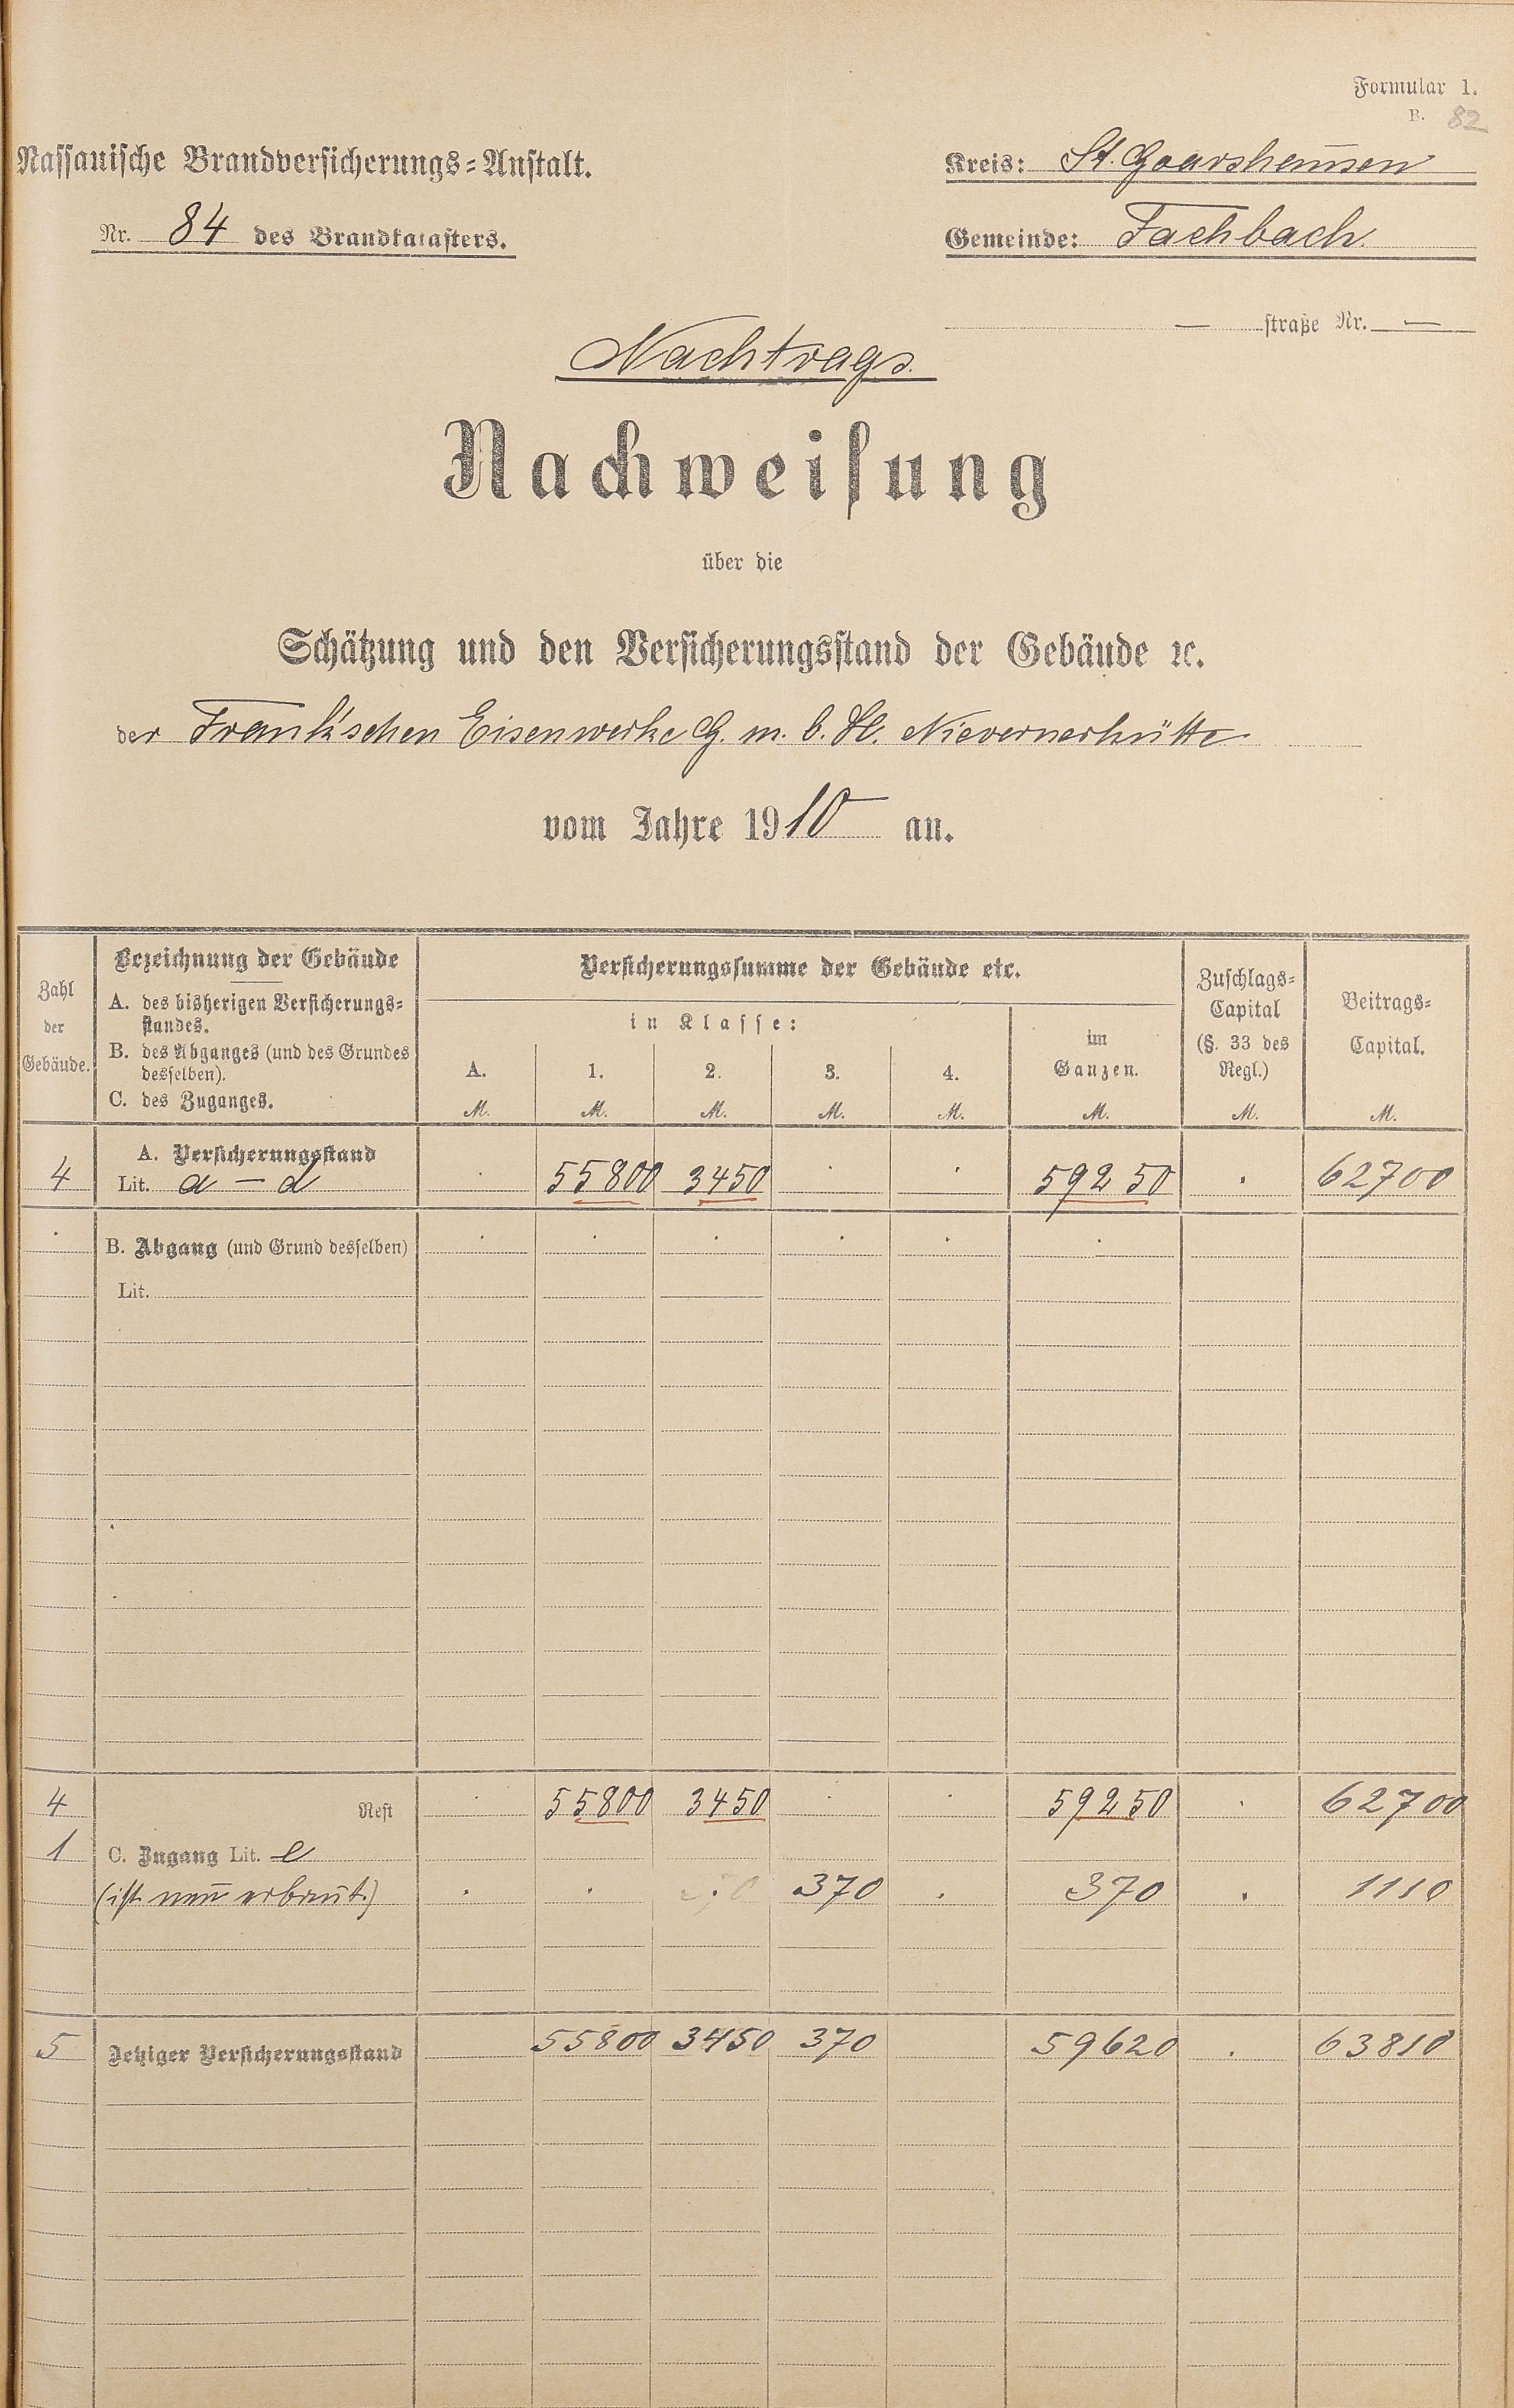 Formular 1.
B. 82
Nassauische Brandversicherungs-Anstalt.
Kreis: St. Goarshausen
Nr. 84 des Brandkatasters.
Gemeinde: Fachbach.
— straße Nr. —
Nachtrags.
Nachweisung
über die
Schätzung und den Versicherungsstand der Gebäude ꝛc.
der Frank'schen Eisenwerke G. m. b. H. Nievernerhütte
vom Jahre 1910 an.
Zahl der Gebäude.
Bezeichnung der Gebäude
A. des bisherigen Versicherungs-
standes.
B. des Abganges (und des Grundes
desselben).
C. des Zuganges.
Versicherungssumme der Gebäude etc.
in Klasse:
A. 1. 2. 3. 4.
im Ganzen.
M. M. M. M. M. M.
Zuschlags-
Capital
(§. 33 des
Regl.)
M.
Beitrags-
Capital.
M.
A. Versicherungsstand
4 Lit. a — d . 55800 3450 . . 59250 . 62700
. B. Abgang (und Grund desselben) . . . . . .
Lit.
4 Rest . 55800 3450 . . 59250 . 62700
1 C. Zugang Lit. e
(ist neu erbaut.) . . 370 . 370 . 1110
5 Jetziger Versicherungsstand 55800 3450 370 59620 . 63810